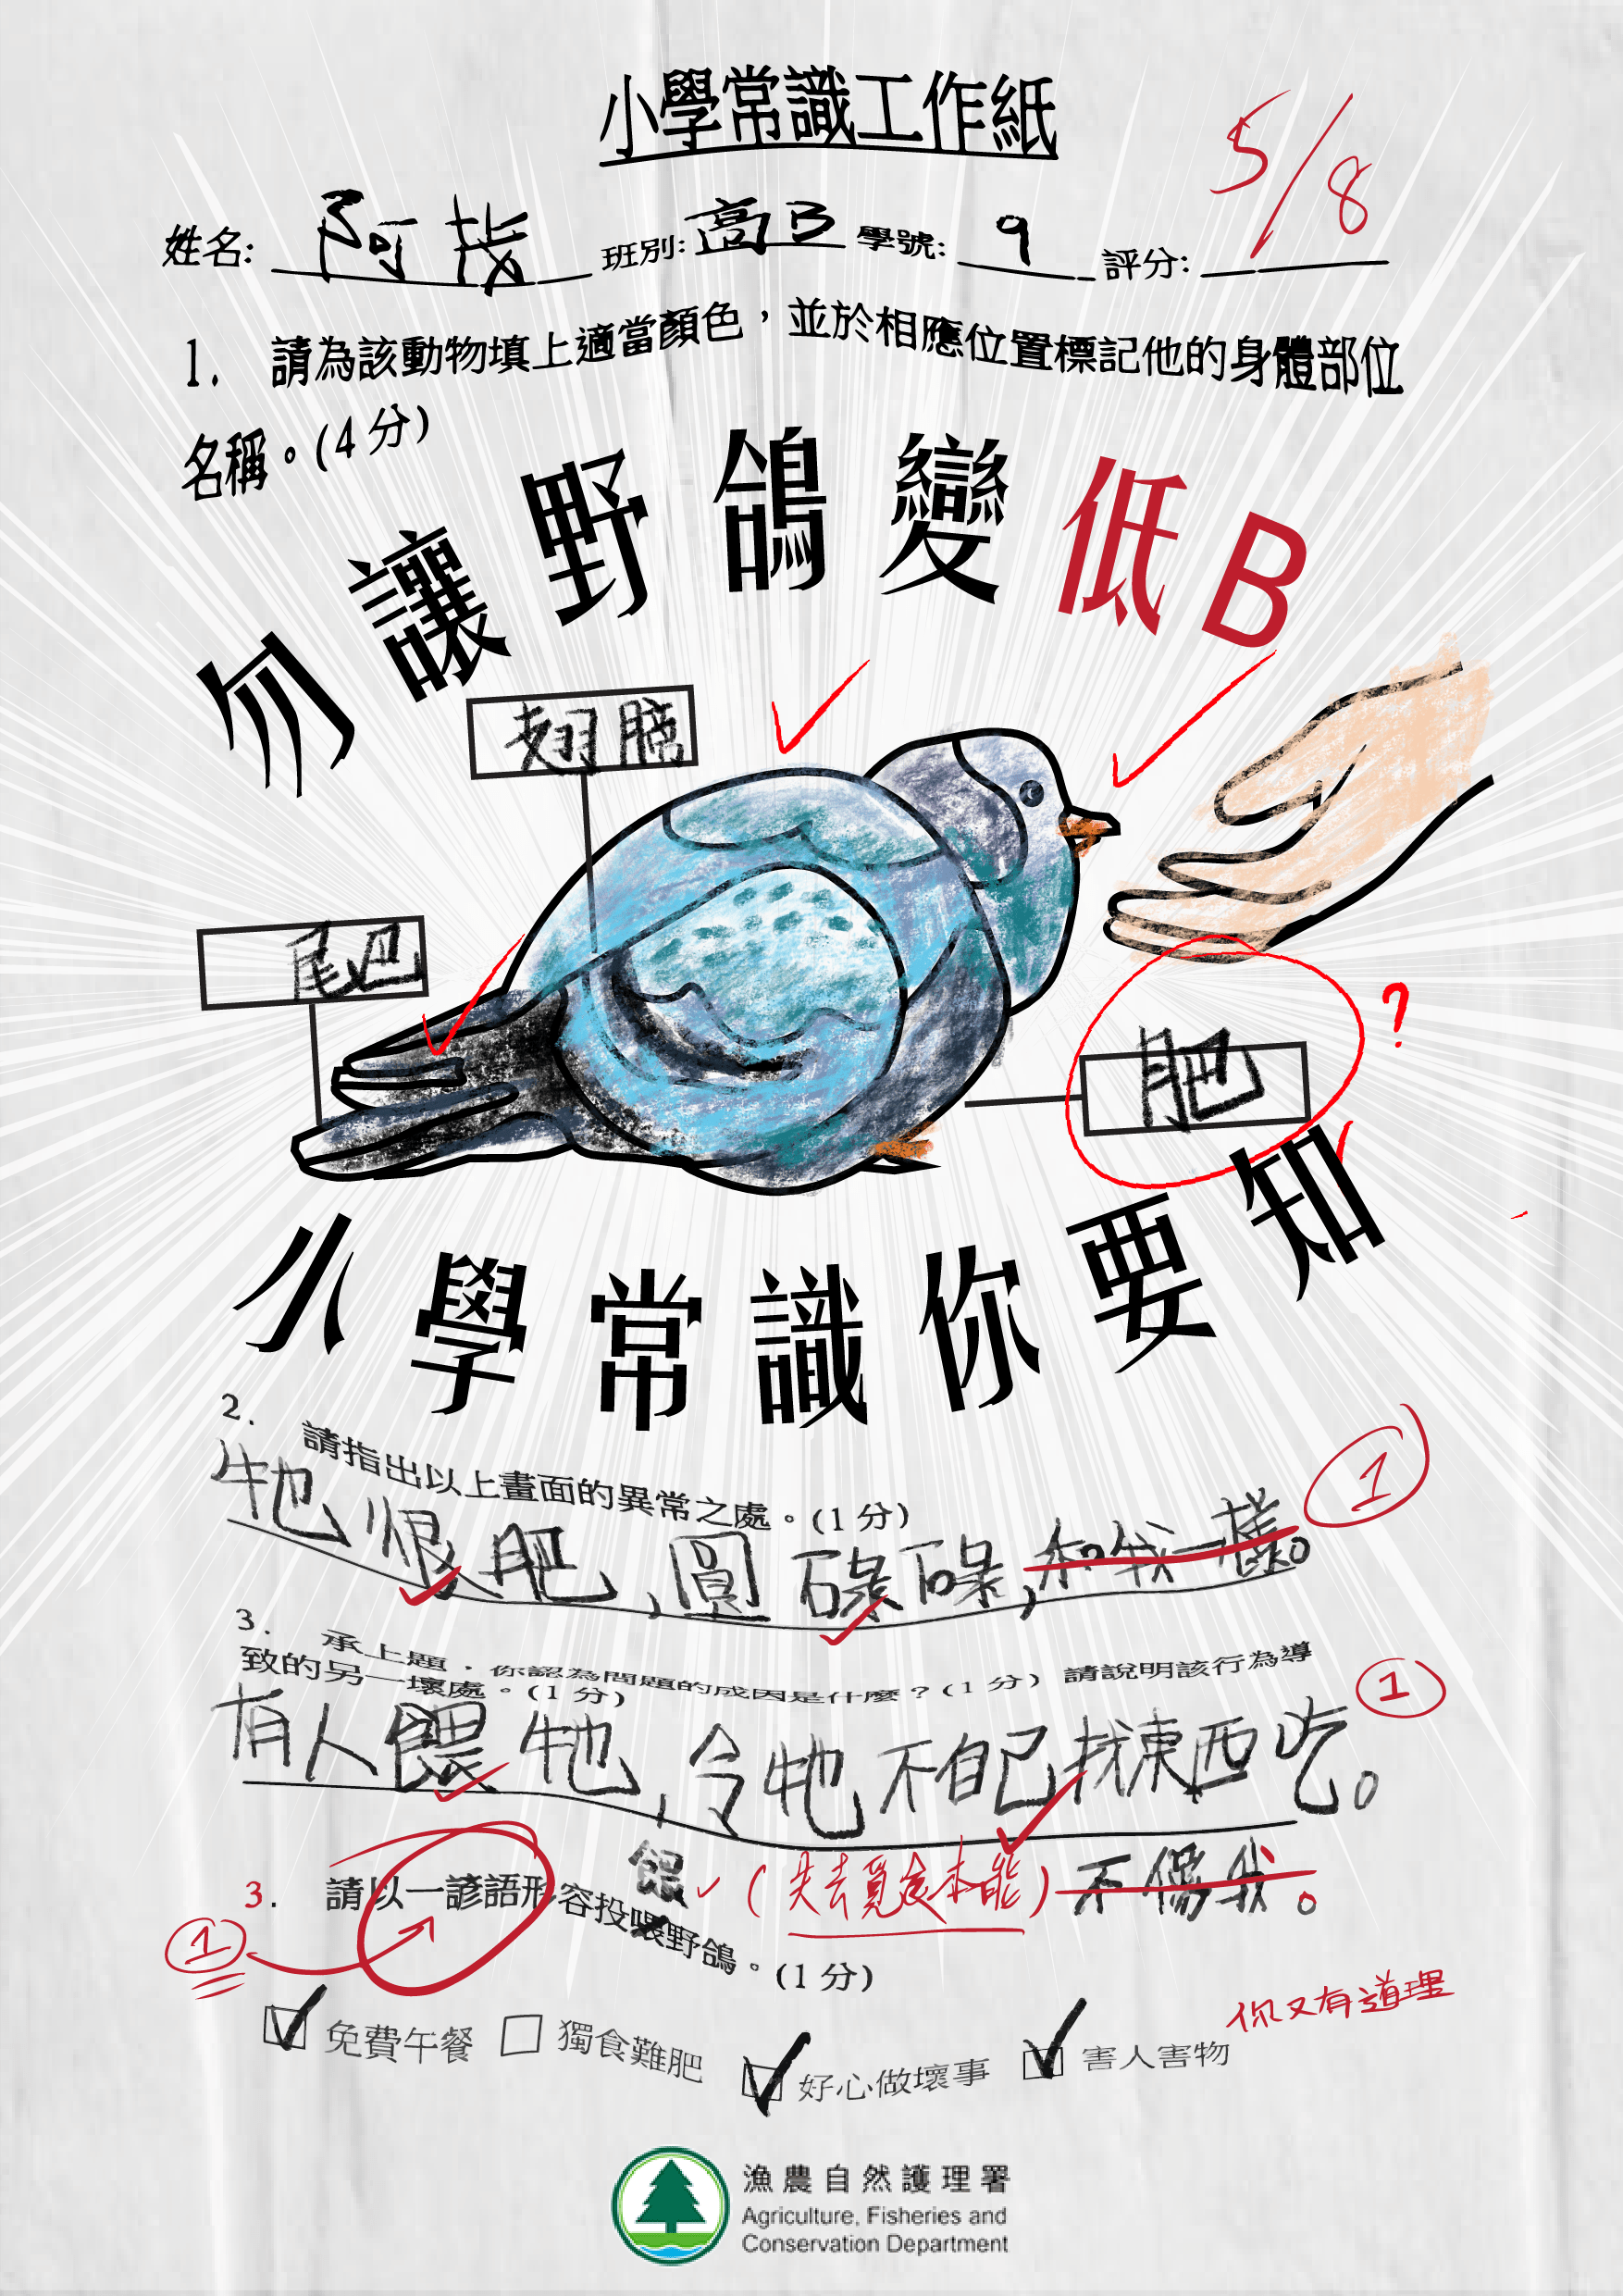 小學常識工作紙
姓名: 阿 班別: 高B 學號: 9 評分: 5/8
1. 請為該動物填上適當顏色，並於相應位置標記他的身體部位
名稱。(4分)
勿讓野鴿變低B
翅膀
尾巴
肥 ?
小學常識你要知
2. 請指出以上畫面的異常之處。(1分)
牠很肥,圓碌碌,和我一樣。 1
3. 承上題，你認為問題的成因是什麼？(1分) 請說明該行為導
致的另一壞處。(1分)
有人餵牠,令牠不自己找東西吃。 1
(失去覓食本能) 不像我。
3. 請以一諺語形容投餵野鴿。(1分)
1
你又有道理
免費午餐 獨食難肥 好心做壞事 害人害物
漁農自然護理署
Agriculture, Fisheries and
Conservation Department